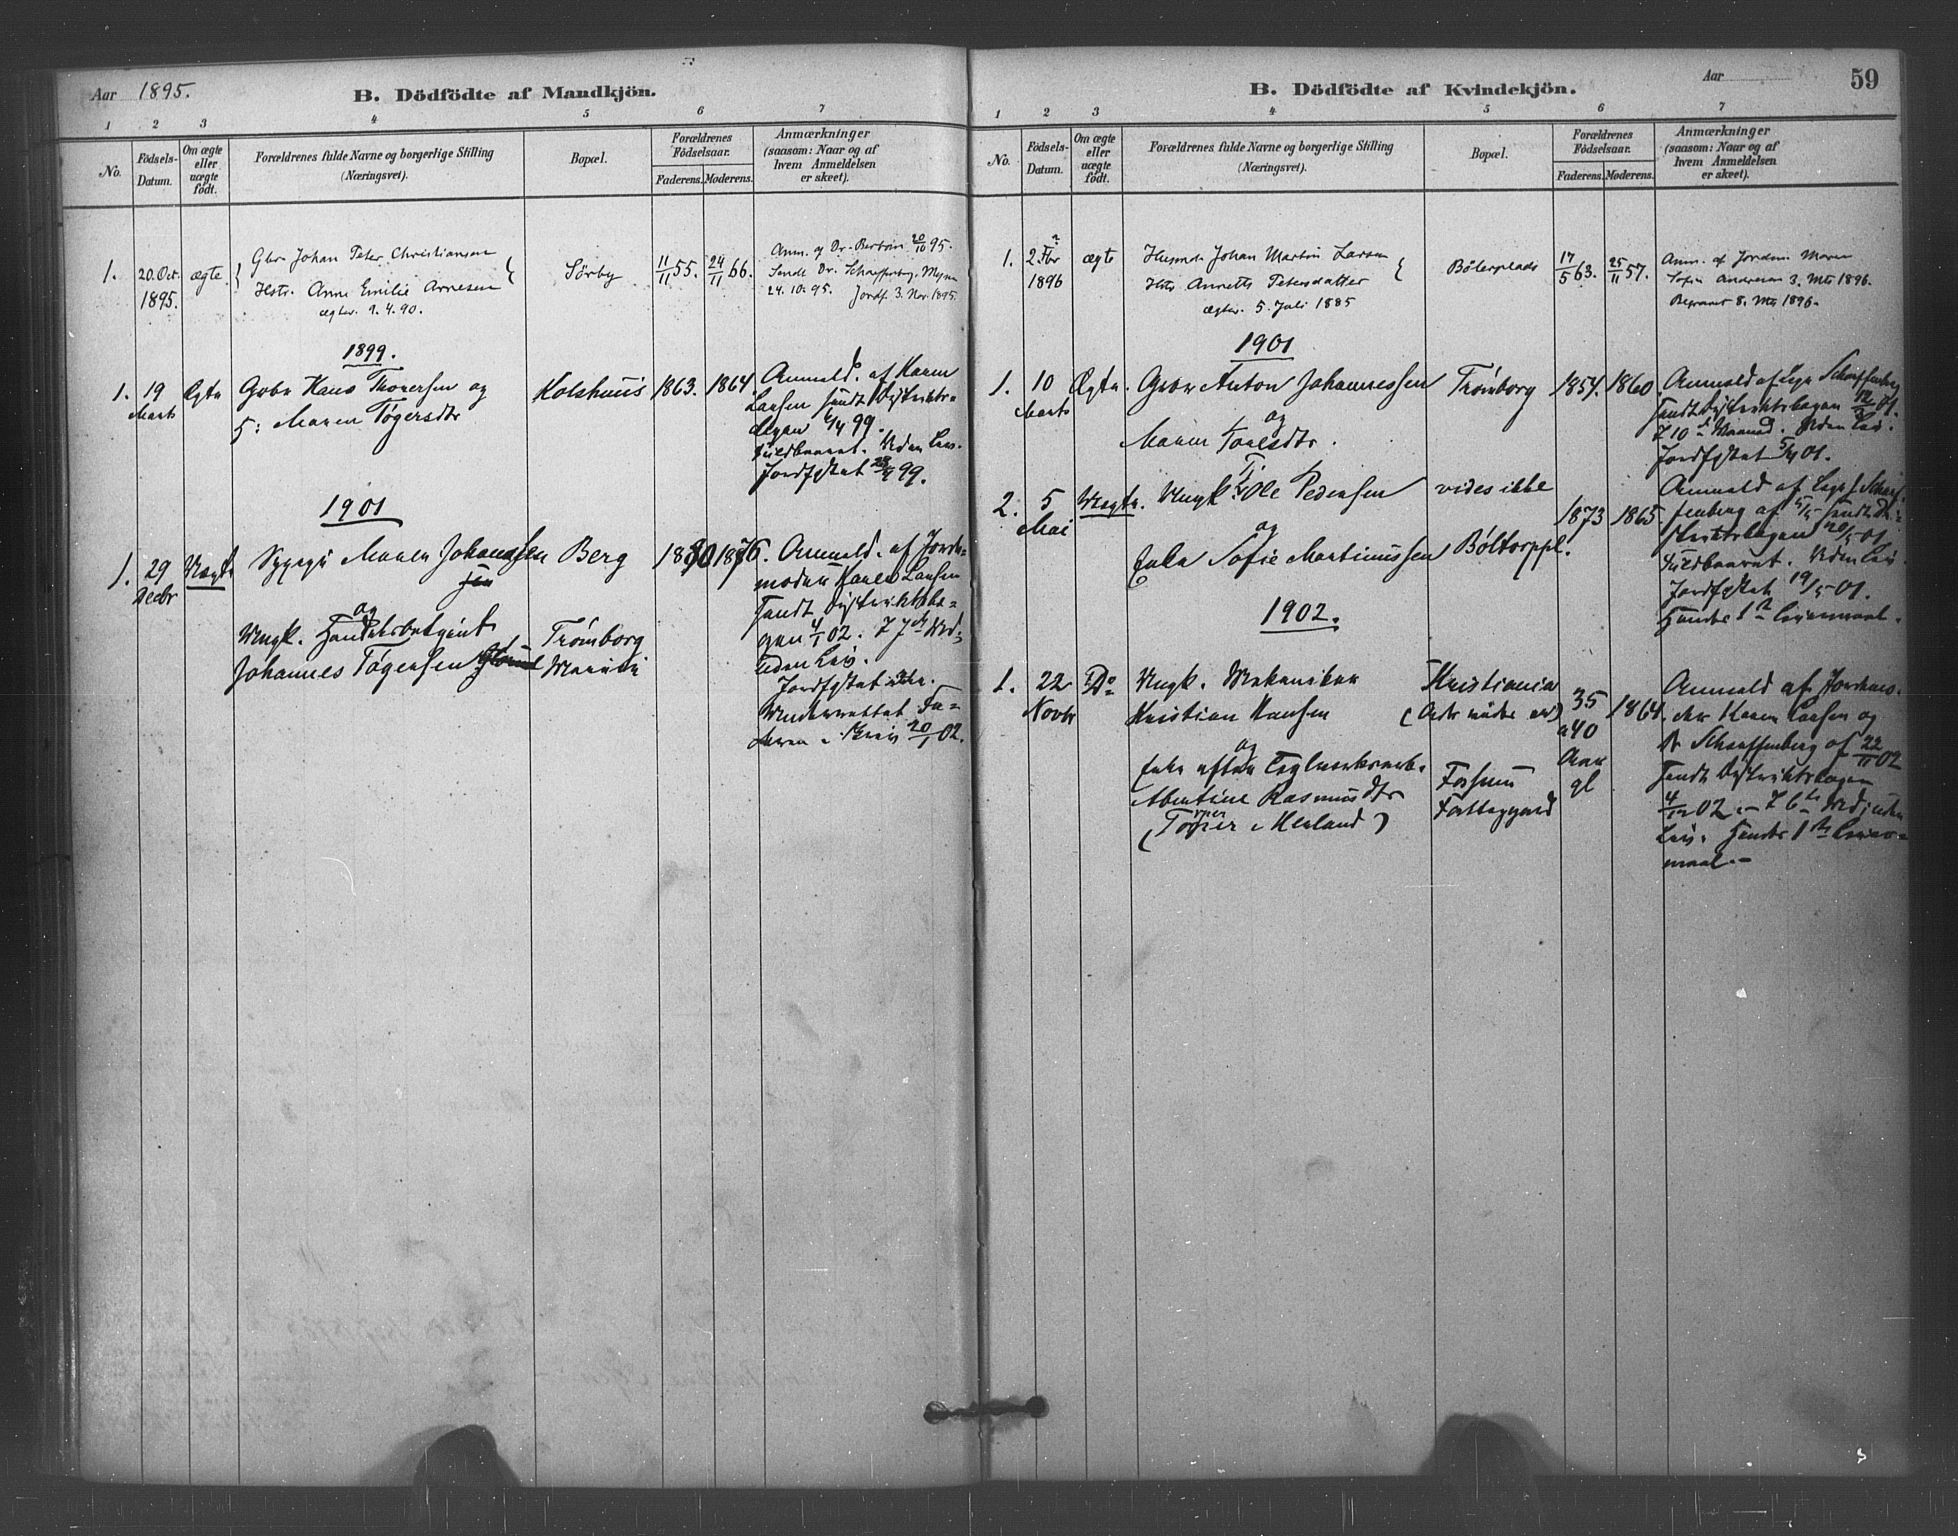 Aar 1895.
B. Dödfödte af Mandkjön.
1 2 3 4 5 6 7
No.
Födsels-Datum.
Om ægte eller uægte födt.
Forældrenes fulde Navne og borgerlige Stilling
(Næringsvei).
Bopæl.
Forældrenes Födselsaar.
Faderens. Moderens.
Anmærkninger
(saasom: Naar og af
hvem Anmeldelsen
er skeet).
1. 20. Oct. 1895. ægte.
Gbr Johan Peter Christiansen
Hstr. Anne Emilie Arnesen
ægtev. 9.4.90.
Sörby
11/11 55. 24/11 66.
Anm. af Dr. 20/10 95.
Sendt Dr. Mysen
24.10.95. Jordf. 3. Nov. 1895.
1899.
1. 19 Marts Ægte
Gbr Hans Thoresen og
H: Maren Tøgersdtr
Kolshuus 1863. 1864.
Anmeldt af Karen
Larsen sendt Distrikts-
lægen 99.
Fuldbaaret. Uden Liv.
Jordfæstet 99.
1901
1. 29 Decbr Uægte
Sypige Maren Johannessen
og
Ungk. Handelsbetjent
Johannes Tøgersen
Berg
Trömborg
1880 1876.
Anmeld. af Jorde-
moder Karen Larsen
Sendt Distriktslæ-
gen 4/1 02. I 7de Md.
Uden Liv.
Jordfæstet
Underrettet Fa-
deren i Brev 20/1 02.
Aar
59
B. Dödfödte af Kvindekjön.
1 2 3 4 5 6 7
No.
Födsels-Datum.
Om ægte eller uægte födt.
Forældrenes fulde Navne og borgerlige Stilling
(Næringsvei).
Bopæl.
Forældrenes Födselsaar.
Faderens. Moderens.
Anmærkninger
(saasom: Naar og af
hvem Anmeldelsen
er skeet).
1. 2 Fbr ? 1896 ægte
Husmd. Johan Martin Larsen
Hstr Annette Petersdatter
ægtev. 5. Juli 1885
Bölerplads
17/5 63. 25/11 57.
Anm. af Jordm. Maren
Sofie Andresen 3. Mts 1896.
Begravet 8. Mts 1896.
1901
1. 10 Marts Ægte.
Gbr Anton Johannessen
og
Maren Povelsdtr.
Trömborg 1854. 1860.
Anmeldt af Læge Scharffenberg
sendt Distriktslægen 12/3 01.
I 10de Maaned. Uden Liv.
Jordfæstet 5/4 01.
2. 5 Mai Uægte.
Ungk. Ole Pedersen
og
Enke Sofie Martinussen
vides ikke
Böltorppl.
1873 1865.
Anmeld af Læge Scharf-
fenberg af 5/5 sendt Di-
striktslægen 20/5 01
Fuldbaaret. Uden Liv.
Jordfæstet 19/5 01.
Hendes 1ste Leiermaal.
1902.
1. 22 Novbr Do
Ungk. Mekaniker
Kristian Hansen
og
Enke efter Teglverksarb.
Albertine Rasmusdtr
Kristiania
Fossum
Fattiggaard
35 a 40 Aar gl
1864.
Anmeld af Jordemo-
der Karen Larsen og
Dr Scharffenberg af 22/11 02
Sendt Distriktslægen
4/12 02. I 6te Md; uden
Liv. Hendes 1ste Leier-
maal.